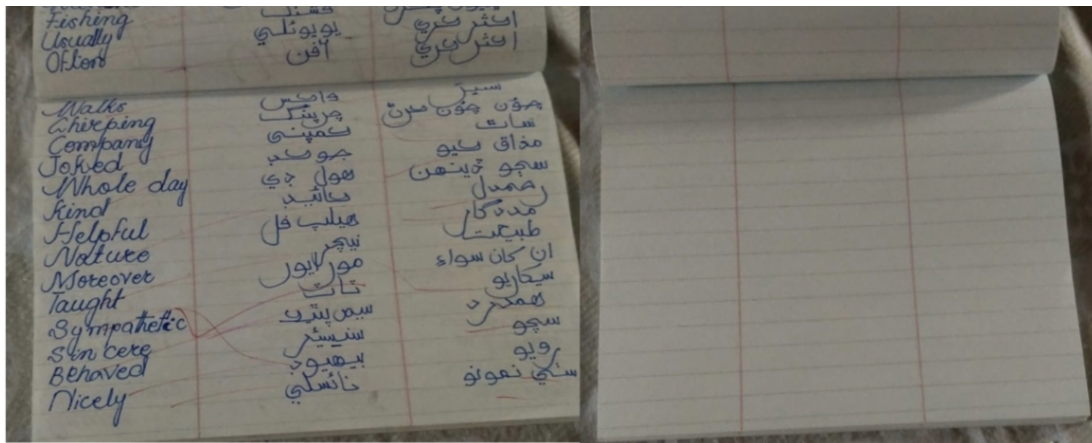 Fishing فشنگ
Usually يوزئلي اڪثر ڪري
Oftion آفن اڪثر ڪري
Walks واڪس سير
Chirping چرپنگ چون چون ڪرڻ
Company ڪمپني سات
Joked جوڪڊ مذاق ڪيو
Whole day هول ڊي سڄو ڏينهن
Kind ڪائينڊ رحمدل
Helpful هيلپ فل مددگار
Nature نيچر طبيعت
Moreover مور اوور ان کان سواء
Taught ٽاٽ سيکاريو
Sympathetic سمپٿيٽڪ همدرد
Sincere سنسيئر سچو
Behaved بيهيوڊ رويو
Nicely نائسلي سٺي نموني